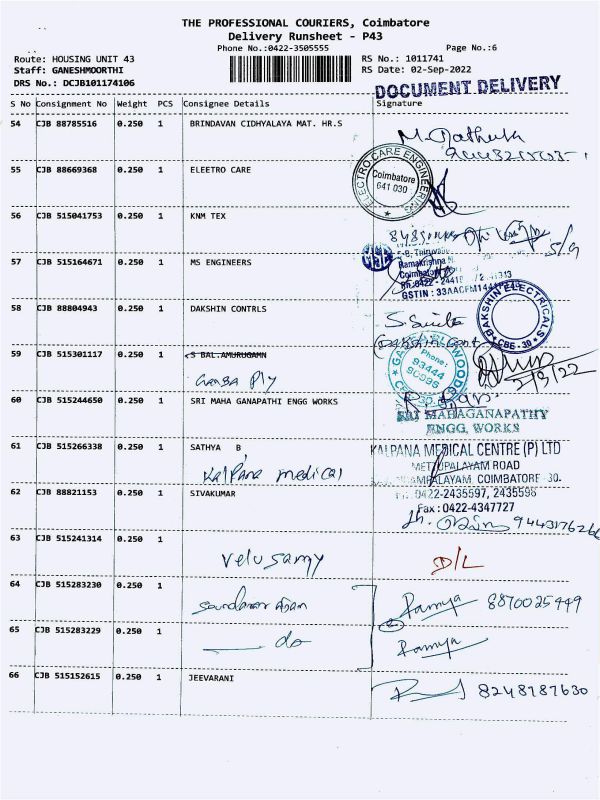 THE PROFESSIONAL COURIERS, Coimbatore
Delivery Runsheet - P43
Phone No.:0422-3505555
Page No.:6
Route: HOUSING UNIT 43
RS No.: 1011741
Staff: GANESHMOORTHI
RS Date: 02-Sep-2022
DRS No.: DCJB101174106
DOCUMENT DELIVERY
S No Consignment No Weight PCS Consignee Details Signature
54 CJB 88785516 0.250 1 BRINDAVAN CIDHYALAYA MAT. HR.S
55 CJB 88669368 0.250 1 ELEETRO CARE
ELECTRO CARE ENGINEERING
Coimbatore
641 030
56 CJB 515041753 0.250 1 KNM TEX
5/9
57 CJB 515164671 0.250 1 MS ENGINEERS
Ramakrishna
Coimbatore
58 CJB 88804943 0.250 1 DAKSHIN CONTRLS
DAKSHIN ELECTRICALS
CBE-30
59 CJB 515301117 0.250 1 S BAL.AMURUGAMN
Ganga Ply
Phone:
93444
2/9/22
60 CJB 515244650 0.250 1 SRI MAHA GANAPATHI ENGG WORKS
SRI MAHAGANAPATHY
ENGG. WORKS
61 CJB 515266338 0.250 1 SATHYA B
Kalpana medical
KALPANA MEDICAL CENTRE (P) LTD
METTUPALAYAM ROAD
COIMBATORE - 30.
62 CJB 88821153 0.250 1 SIVAKUMAR
0422-2435597, 2435598
Fax : 0422-4347727
63 CJB 515241314 0.250 1
Velusamy
D/L
64 CJB 515283230 0.250 1
Ramya 8870025449
65 CJB 515283229 0.250 1
do
Ramya
66 CJB 515152615 0.250 1 JEEVARANI
8248787630